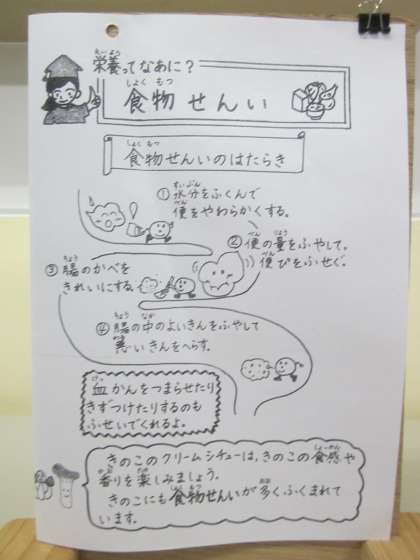 栄養ってなあに？
えいよう
食物せんい
しょくもつ
食物せんいのはたらき
しょくもつ
①水分をふくんで
すいぶん
便をやわらかくする。
べん
②便の量をふやして、
べん りょう
便ぴをふせぐ。
べん
③腸のかべを
ちょう
きれいにする。
④腸の中のよいきんをふやして
ちょう なか
悪いきんをへらす。
わる
血かんをつまらせたり
けっ
きずつけたりするのも
ふせいでくれるよ。
きのこのクリームシチューは、きのこの食感や
しょっかん
香りを楽しみましょう。
かお たの
きのこにも食物せんいが多くふくまれて
しょくもつ おお
います。